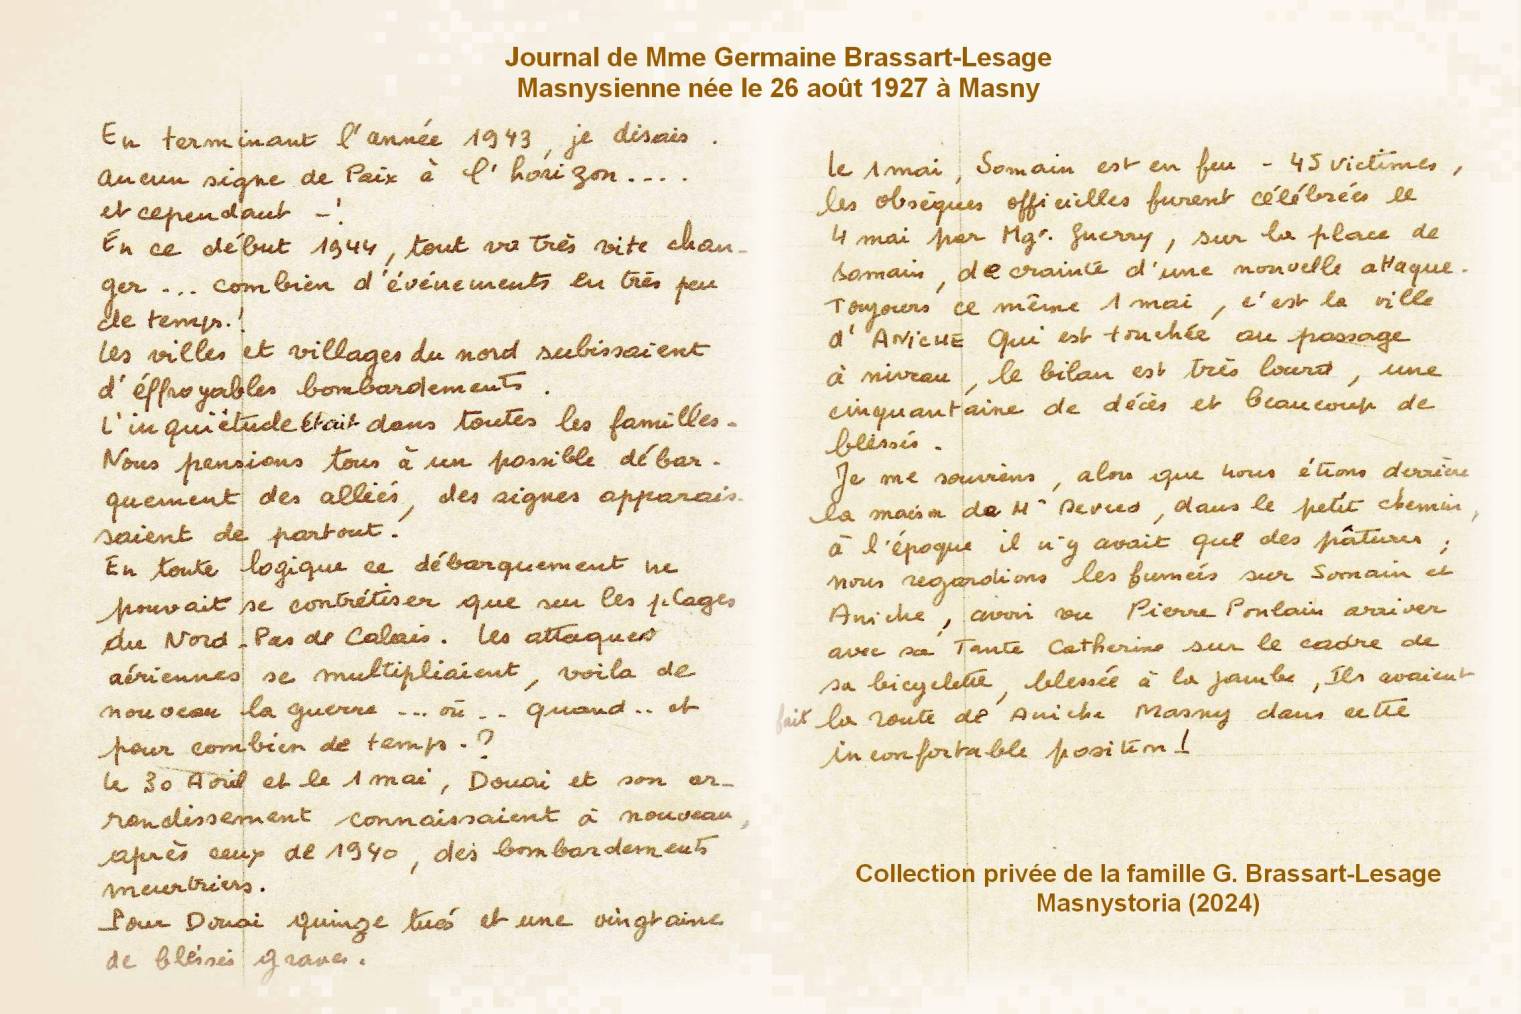 Journal de Mme Germaine Brassart-Lesage
Masnysienne née le 26 août 1927 à Masny
En terminant l'année 1943, je disais.
aucun signe de Paix à l'horizon....
et cependant -!
En ce début 1944, tout va très vite chan-
ger... combien d'événements en très peu
de temps.!
les villes et villages du nord subissaient
d'éffroyables bombardements.
L'inquiétude était dans toutes les familles.
Nous pensions tous à un possible débar-
quement des alliés, des signes apparais-
saient de partout.
En toute logique ce débarquement ne
pouvait se contrétiser que sur les plages
du Nord-Pas de Calais. les attaques
aériennes se multipliaient, voila de
nouveau la guerre ... où .. quand .. et
pour combien de temps.?
le 30 Avril et le 1 mai, Douai et son ar-
rondissement connaissaient à nouveau,
après ceux de 1940, des bombardements
meurtriers.
Pour Douai quinze tués et une vingtaine
de bléssés graves.
le 1 mai, Somain est en feu - 45 victimes,
les obsèques officielles furent célébrées le
4 mai par Mgr. Guerry, sur la place de
Somain, de crainte d'une nouvelle attaque.
Toujours ce même 1 mai, c'est la ville
d'ANICHE Qui est touchée au passage
à niveau, le bilan est très lourd, une
cinquantaine de décès et beaucoup de
bléssés.
Je me souviens, alors que nous étions derrière
la maison de Mr, dans le petit chemin,
à l'époque il n'y avait que des pâtures;
nous regardions les fumées sur Somain et
Aniche, avoir vu Pierre Poulain arriver
avec sa Tante Catherine sur le cadre de
sa bicyclette, blessée à la jambe, Ils avaient
fait la route de Aniche Masny dans cette
inconfortable position!
Collection privée de la famille G. Brassart-Lesage
Masnystoria (2024)